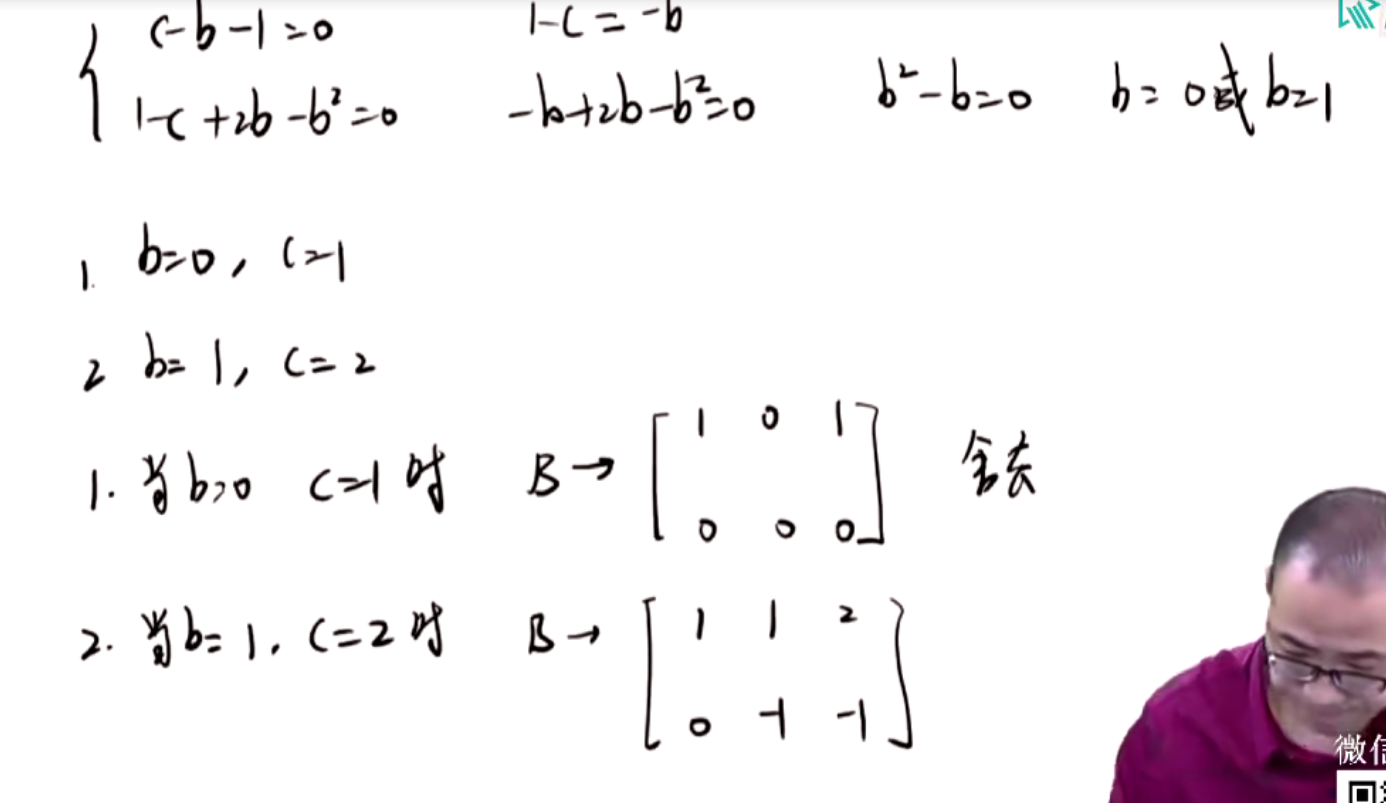 c-b-1=0    1-c=-b
1-c+2b-b²=0    -b+2b-b²=0    b²-b=0    b=0或b=1
1. b=0, c=1
2 b=1, c=2
1. 当b=0 c=1时 B→ [1 0 1
0 0 0] 舍去
2. 当b=1, c=2时 B→ [1 1 2
0 -1 -1]
微信